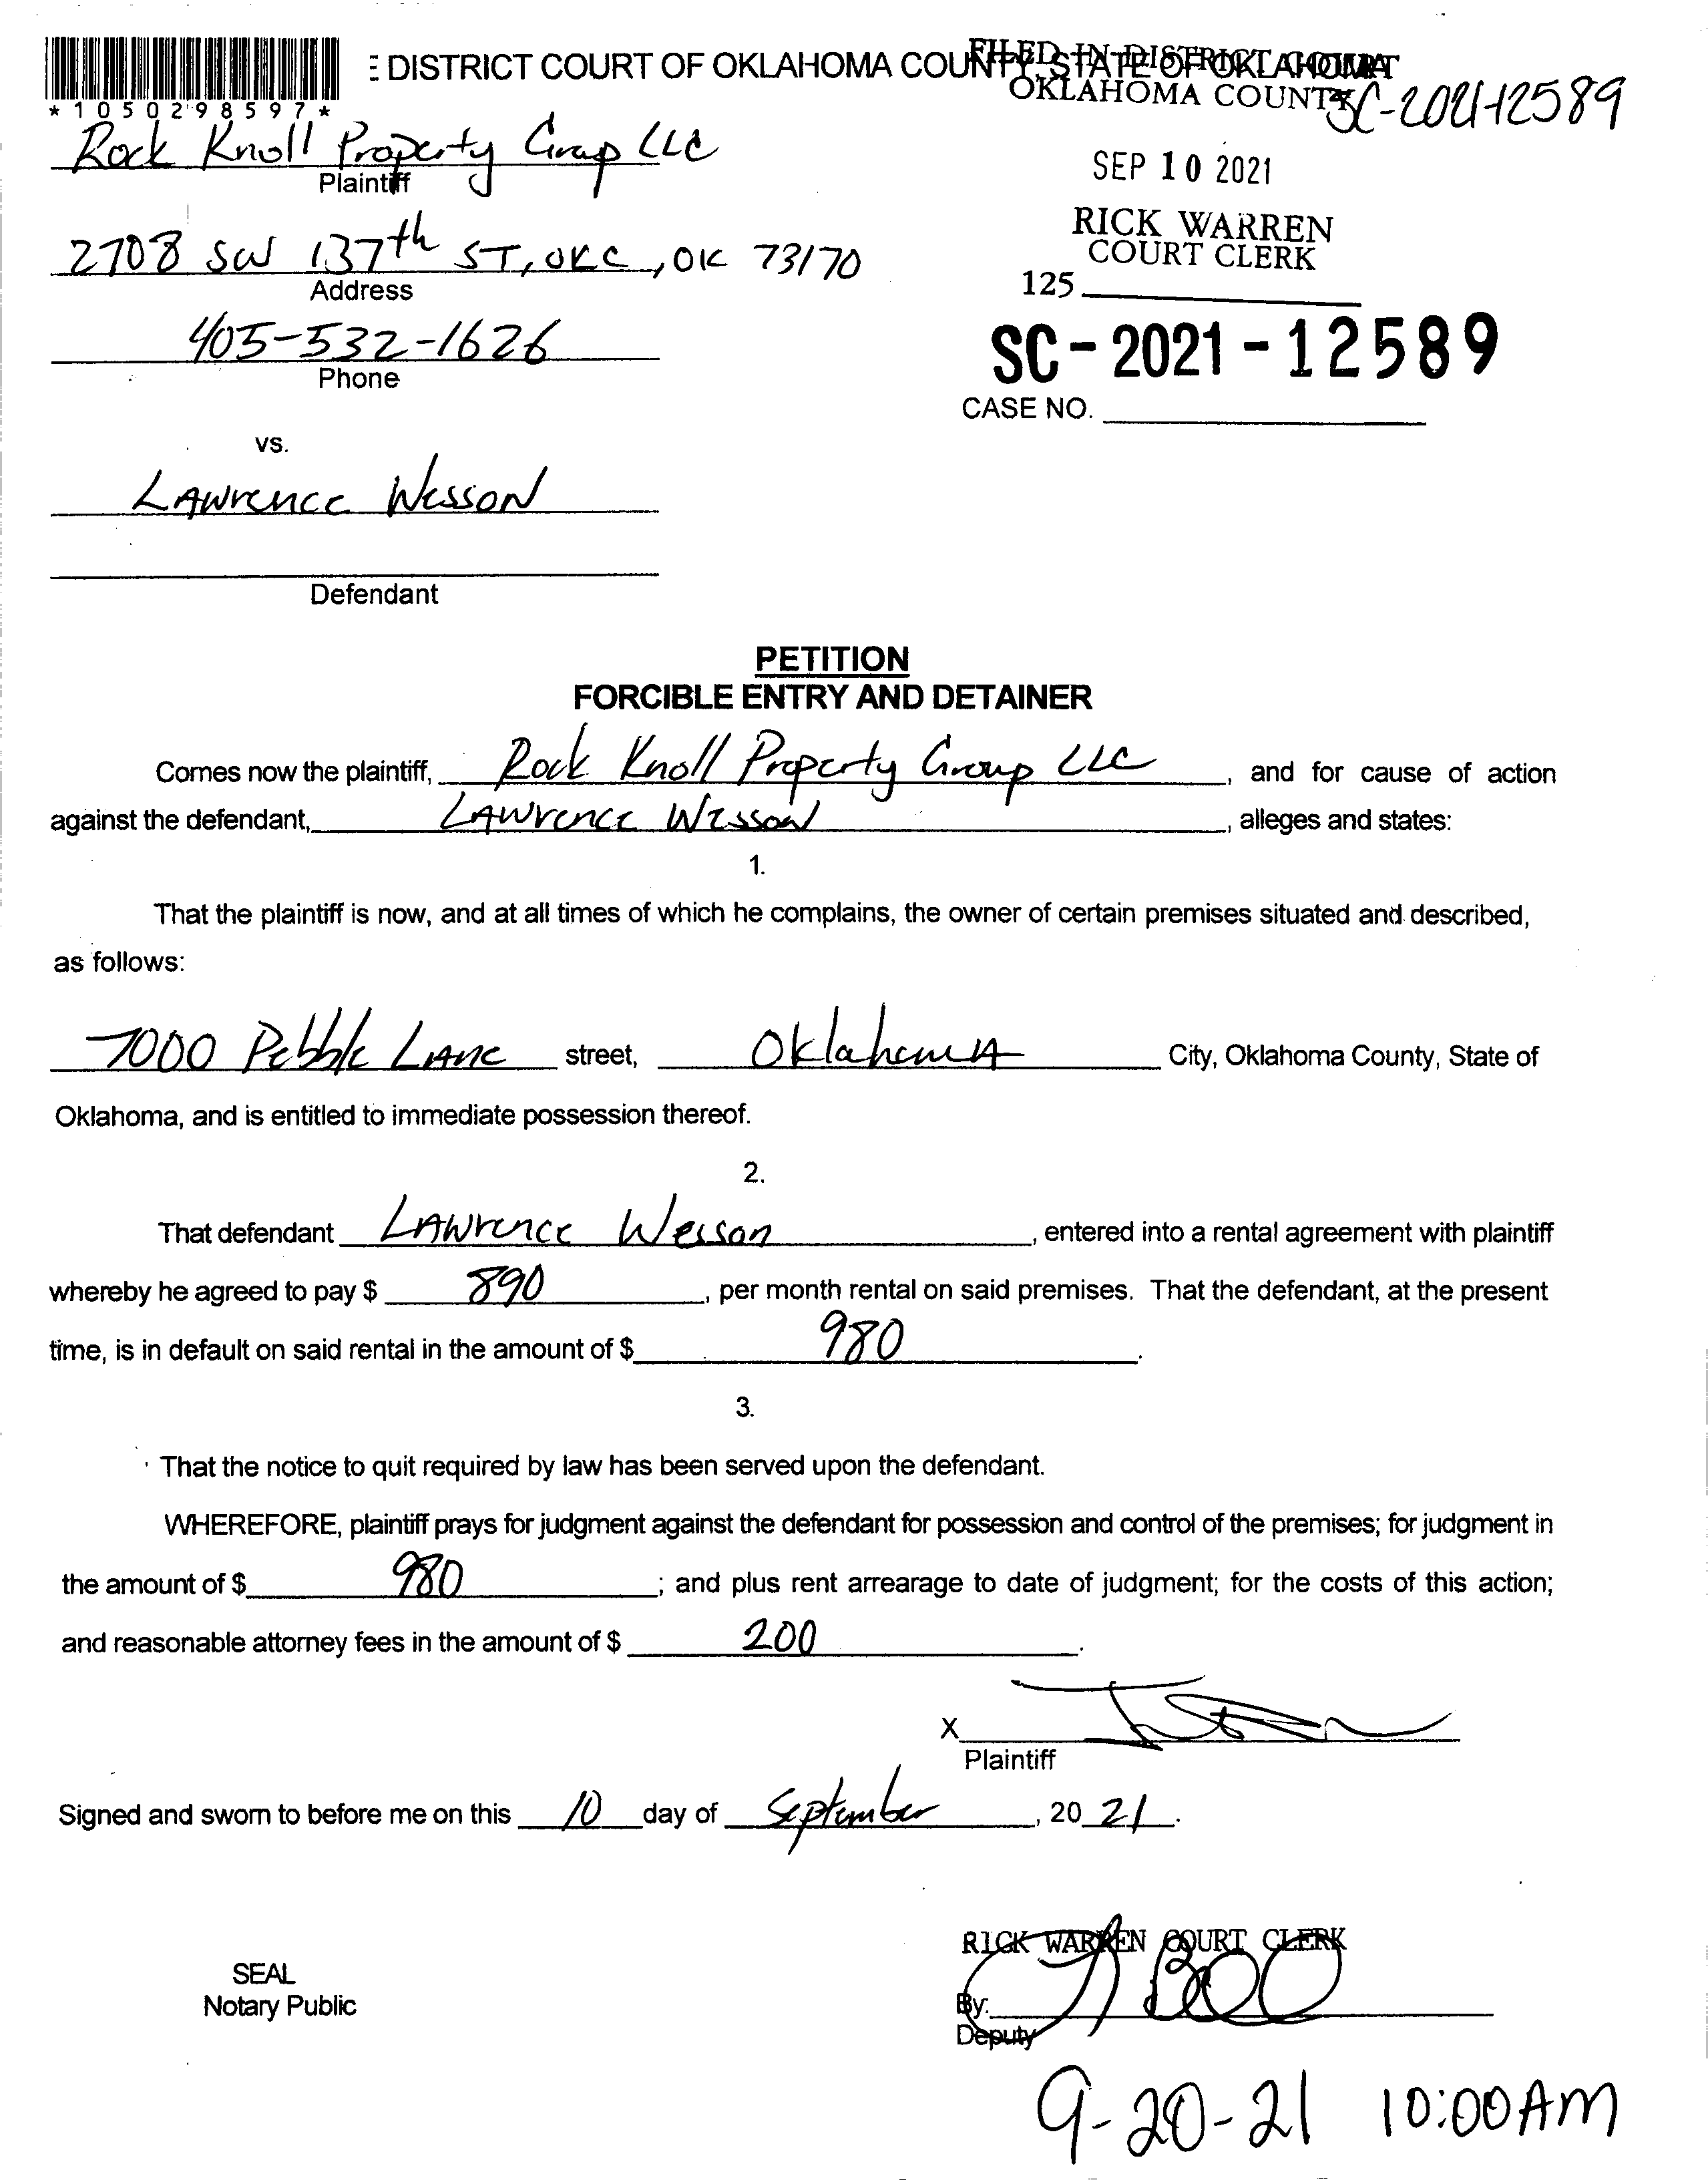 E DISTRICT COURT OF OKLAHOMA COUNTY, STATE OF OKLAHOMA
FILED IN DISTRICT COURT
OKLAHOMA COUNTY
*1050298597*
SC-2021-12589
Rock Knoll Property Group LLC
Plaintiff
SEP 10 2021
2708 SW 137th ST, OKC, OK 73170
Address
RICK WARREN
COURT CLERK
125
405-532-1626
Phone
SC-2021-12589
CASE NO.
vs.
Lawrence Wesson
Defendant
PETITION
FORCIBLE ENTRY AND DETAINER
Comes now the plaintiff, Rock Knoll Property Group LLC, and for cause of action
against the defendant, Lawrence Wesson, alleges and states:
1.
That the plaintiff is now, and at all times of which he complains, the owner of certain premises situated and described,
as follows:
7000 Pebble Lane street, Oklahoma City, Oklahoma County, State of
Oklahoma, and is entitled to immediate possession thereof.
2.
That defendant Lawrence Wesson, entered into a rental agreement with plaintiff
whereby he agreed to pay $ 890, per month rental on said premises. That the defendant, at the present
time, is in default on said rental in the amount of $ 980.
3.
That the notice to quit required by law has been served upon the defendant.
WHEREFORE, plaintiff prays for judgment against the defendant for possession and control of the premises; for judgment in
the amount of $ 980; and plus rent arrearage to date of judgment; for the costs of this action;
and reasonable attorney fees in the amount of $ 200.
X
Plaintiff
Signed and sworn to before me on this 10 day of September, 2021.
RICK WARREN COURT CLERK
SEAL
Notary Public
By:
Deputy
9-20-21 10:00AM